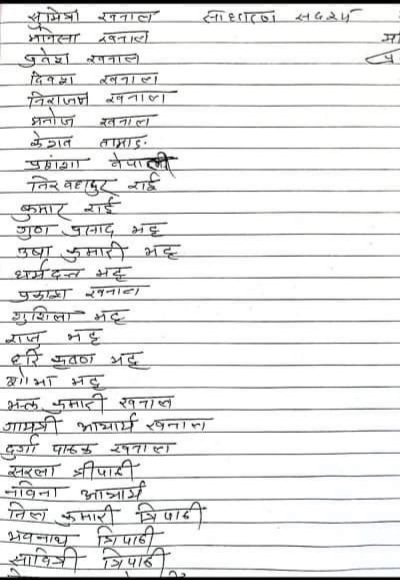 सुमित्रा खनाल साधारण सदस्य
मनिला खनाल
प्रवेश खनाल
दिवश खनाल
निराजन खनाल
मनोज खनाल
केशव तामाङ
प्रशंशा नेपाली
निरबहादुर राई
कुमार राई
गुण प्रसाद भट्ट
उषा कुमारी भट्ट
धर्मदत्त भट्ट
प्रकाश खनाल
शुशिला भट्ट
राजु भट्ट
हरि कृष्ण भट्ट
शोभा भट्ट
भक्त कुमारी खनाल
गायत्री आचार्य खनाल
दुर्गा पाठक खनाल
सरला त्रीपाठी
नविना आचार्य
निल कुमारी त्रिपाठी
भवनाथ त्रिपाठी
सावित्री त्रिपाठी